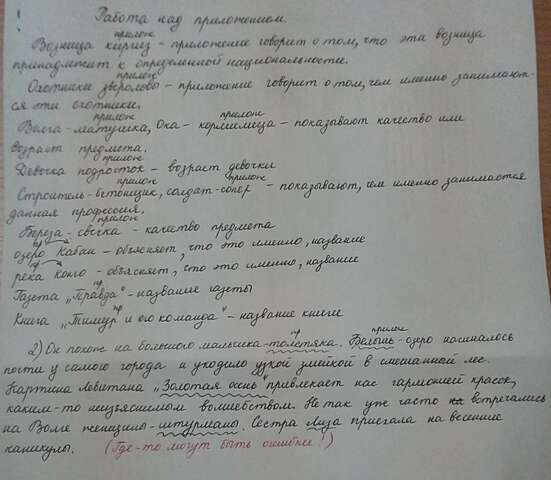 ! Работа над приложением.
прилож
Возница киргиз - приложение говорит о том, что эта возница
принадлежит к определенной национальности.
прилож
Охотники зверолово - приложение говорит о том, чем именно занимают-
ся эти охотники.
прилож прилож
Волга-матушка, Ока - кормилица - показывают качество или
возраст предмета.
прилож
Девочка подросток - возраст девочки
прилож прилож
Строитель-бетонщик, солдат-сапер - показывают, чем именно занимается
данная профессия.
прилож
Береза - свечка - качество предмета
пр
озеро Кабан - объясняет, что это именно, название
пр
река Конго - объясняет, что это именно, название
пр
Газета „Правда" - название газеты
пр
Книга „Тимур и его команда" - название книги
пр прилож
2) Он похож на большого мальчика-толстяка. Балынь-озеро началось
почти у самого города и уходило узкой змейкой в смешанный лес
Картина Левитана „Золотая осень" привлекает нас гармонией красок,
каким-то неизъяснимом волшебством. Не так уж часто встречались
на Волге женщины-штурманы. Сестра Лиза приехала на весенние
каникулы. (Где-то могут быть ошибки!)